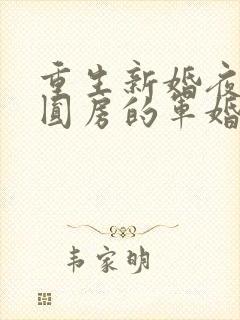 重生新婚夜
圆房的军婚
韦家明